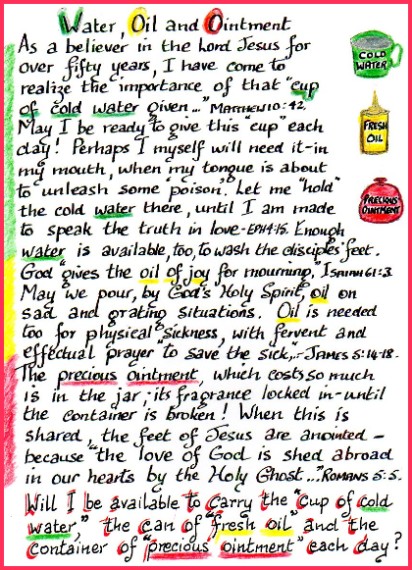 Water, Oil and Ointment
As a believer in the Lord Jesus for
over fifty years, I have come to
realize the importance of that "cup
of cold water given..." Matthew 10:42.
May I be ready to give this "cup" each
day! Perhaps I myself will need it-in
my mouth, when my tongue is about
to unleash some poison. Let me "hold"
the cold water there, until I am made
to speak the truth in love-Eph 4:15. Enough
water is available, too, to wash the disciples' feet.
God "gives the oil of joy for mourning," Isaiah 61:3.
May we pour, by God's Holy Spirit, oil on
sad and grating situations. Oil is needed
too for physical sickness, with fervent and
effectual prayer to save the sick,- James 5:14-18.
The precious ointment, which costs so much
is in the jar; its fragrance locked in-until
the container is broken! When this is
shared, the feet of Jesus are anointed -
because "the love of God is shed abroad
in our hearts by the Holy Ghost..." Romans 5:5.
Will I be available to carry the "cup of cold
water," the can of "fresh oil" and the
container of "precious ointment" each day?
COLD
WATER
FRESH
OIL
PRECIOUS
OINTMENT